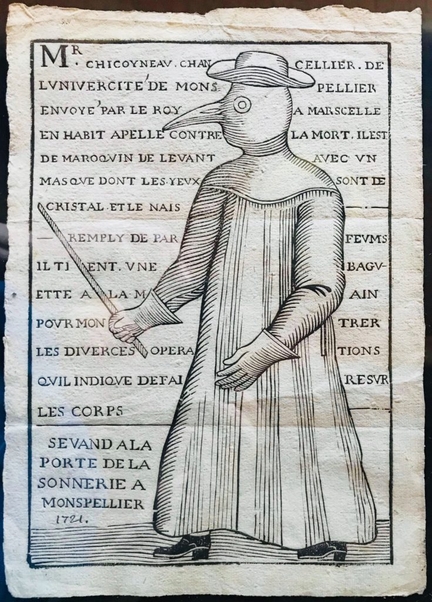 MR. CHICOYNEAU. CHANCELLIER. DE
LVNIVERCITÉ DE MONSPELLIER
ENVOYÉ PAR LE ROY A MARSCELLE
EN HABIT APELLÉ CONTRE LA MORT. ILEST
DE MAROQVIN DE LEVANT AVEC VN
MASQVE DONT LES YEUX SONT DE
CRISTAL ET LE NAIS
REMPLY DE PARFEVMS
ILTIENT. VNE BAGV-
ETTE A LA MAIN
POVR MONTRER
LES DIVERCES OPERATIONS
QVIL INDIQVE DEFAIRESVR
LES CORPS
SEVAND ALA
PORTE DE LA
SONNERIE A
MONSPELLIER
1721.